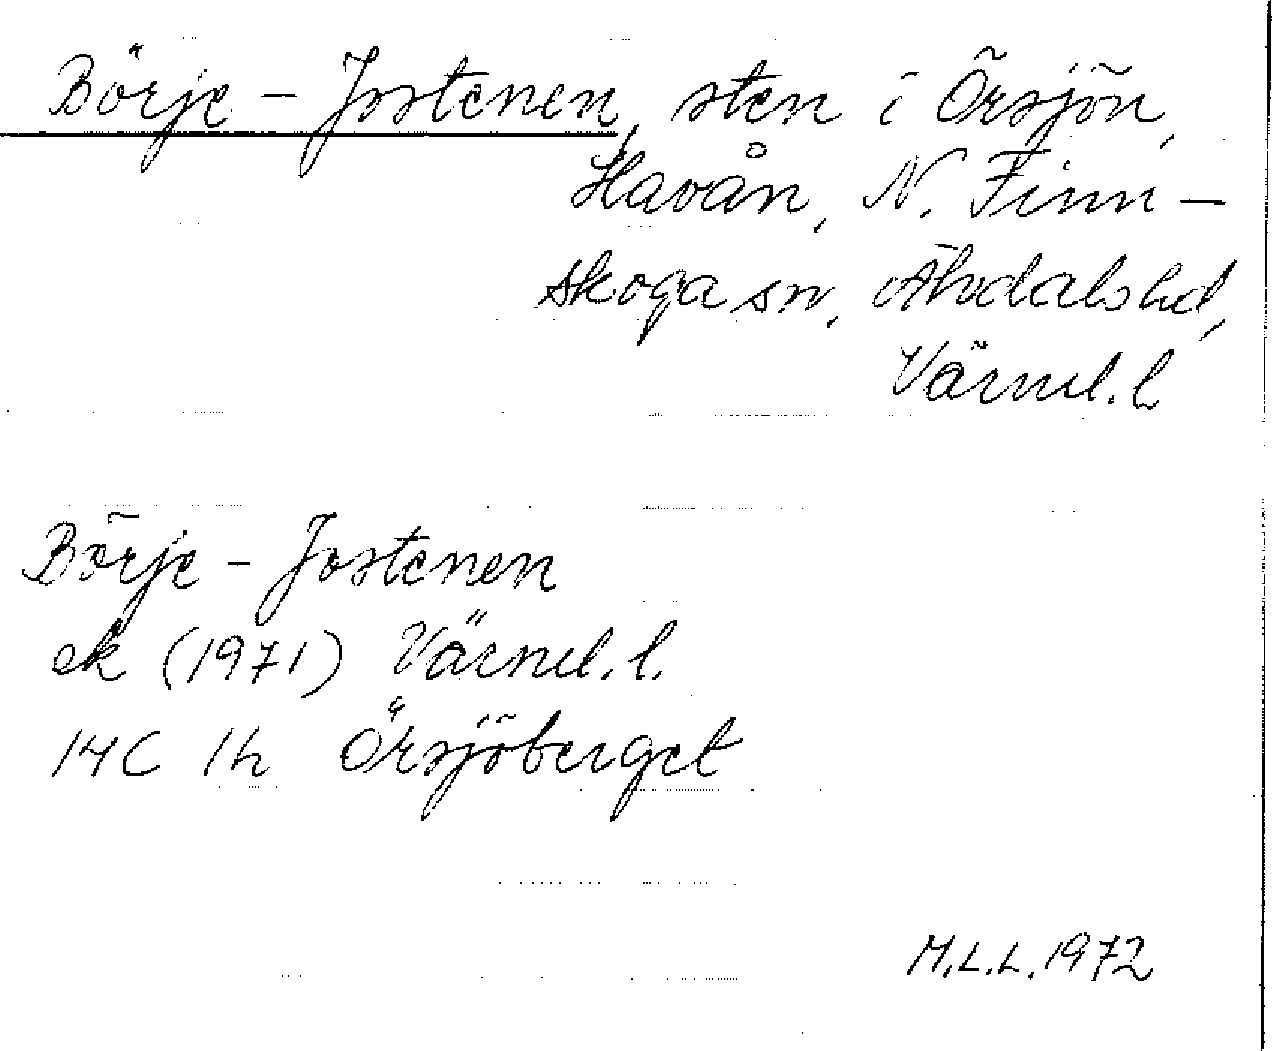 Börje - Jostenen, sten i Örsjön,
Havån, N. Finn-
skoga sn, Älvdals hd,
Värml. l
Börje - Jostenen
ek (1971) Värml. l.
14C 1h Örsjöberget
M.L.L. 1972